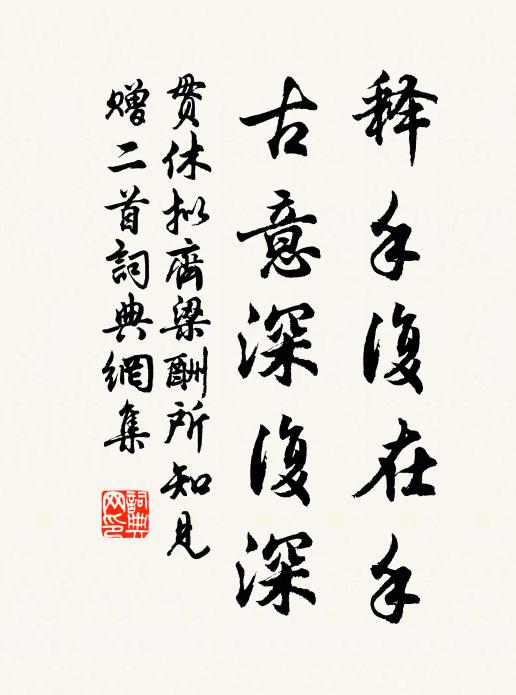 释手復在手
古意深復深
贯休拟齊梁酬所知見
赠二首詞典網集
詞典网印